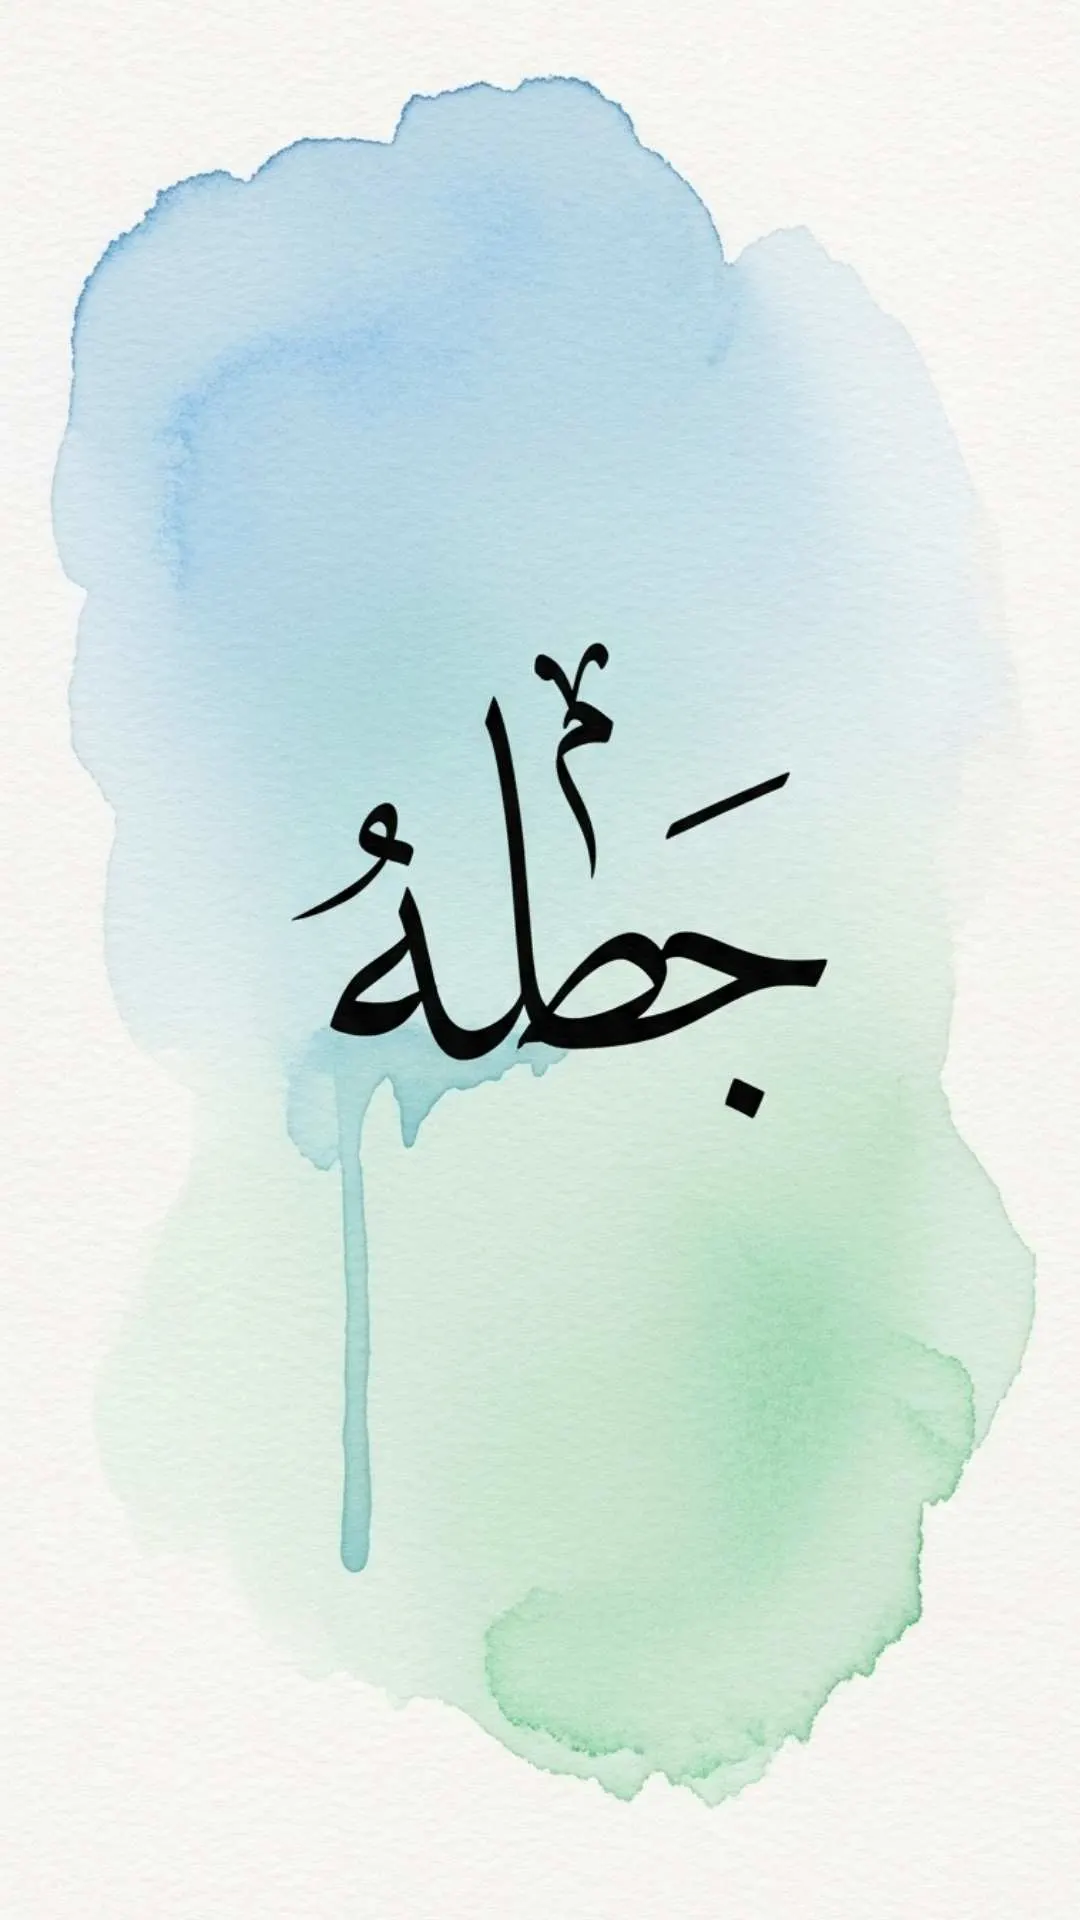 جَطهُ